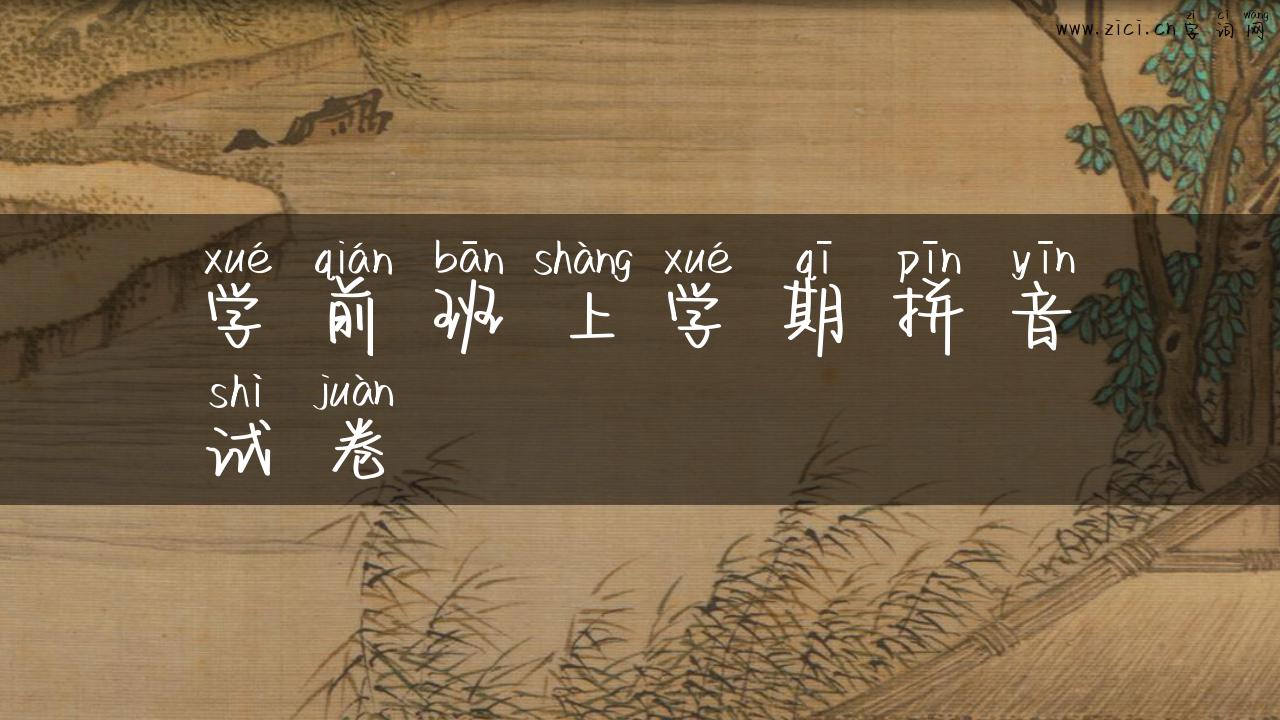 zì cí wǎng
www.zici.cn 字 词 网
xué qián bān shàng xué qī pīn yīn
学 前 班 上 学 期 拼 音
shì juàn
试 卷